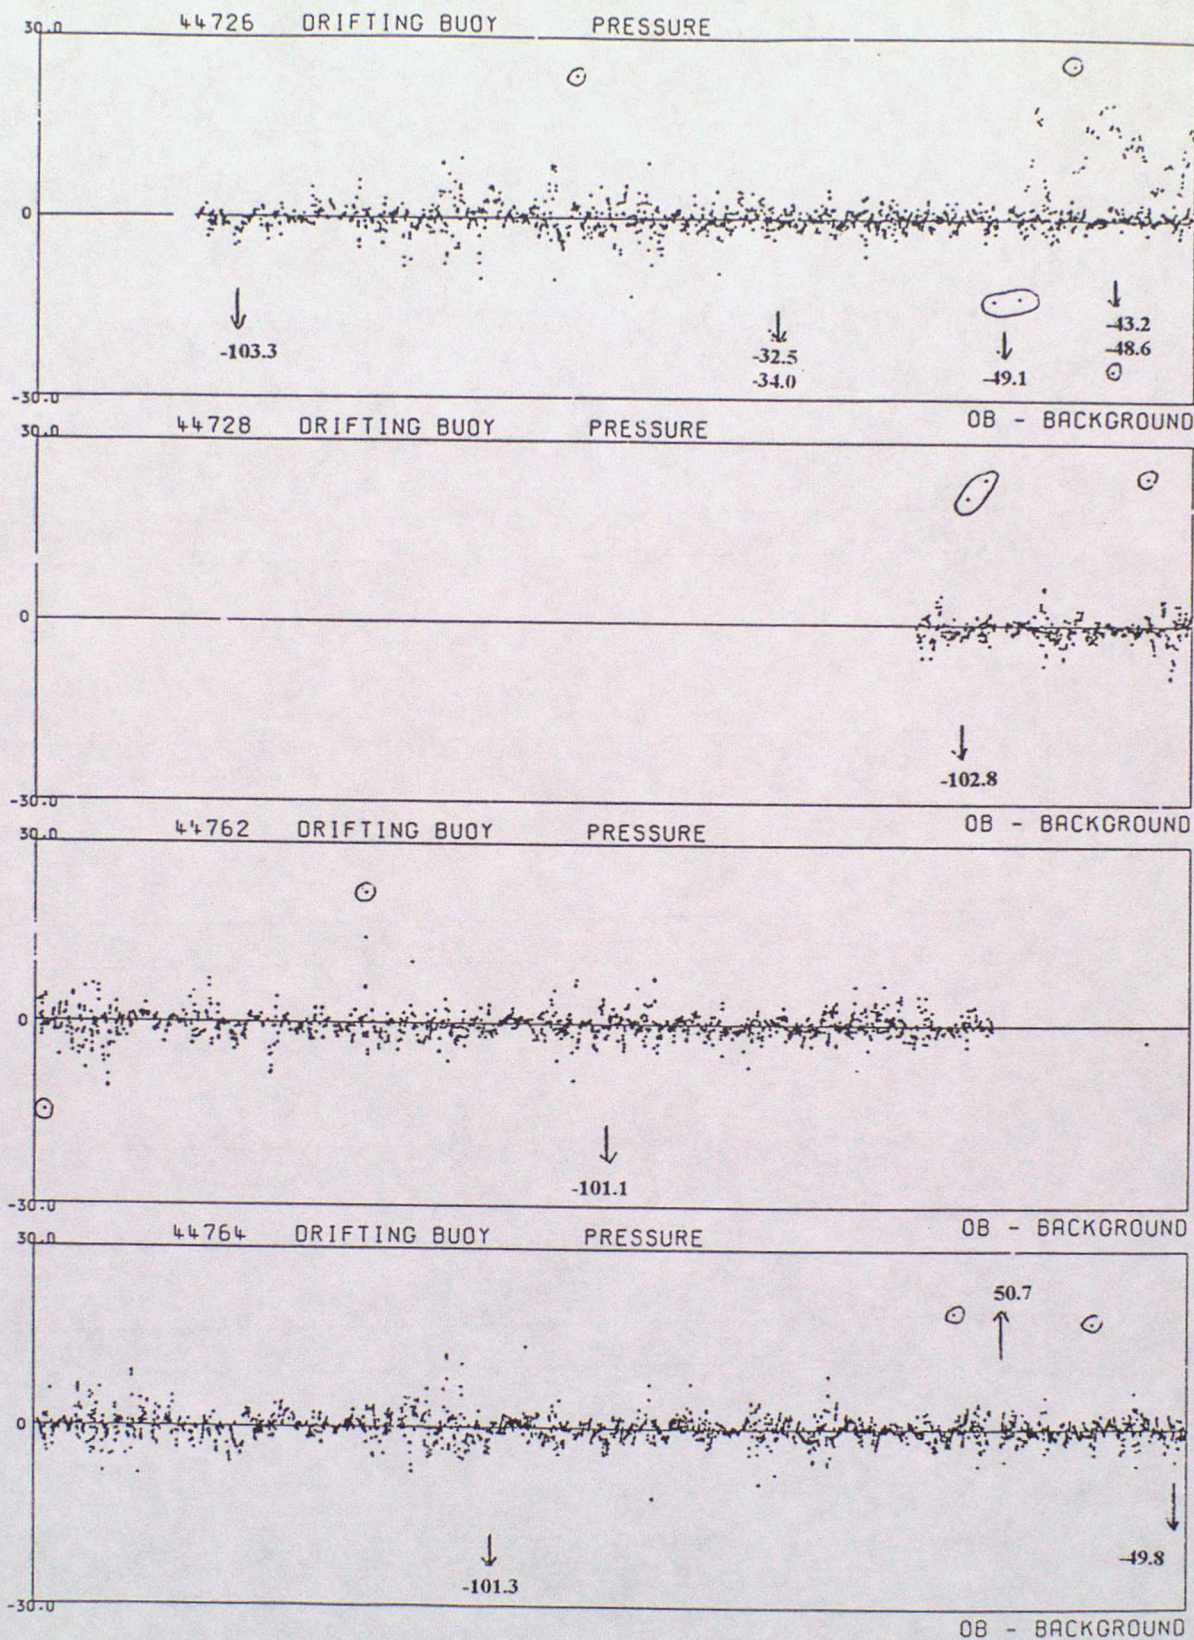 30.0 44726 DRIFTING BUOY PRESSURE
0
-103.3
-32.5
-34.0
-49.1
-43.2
-48.6
-30.0
OB - BACKGROUND
30.0 44728 DRIFTING BUOY PRESSURE
0
-102.8
-30.0
OB - BACKGROUND
30.0 44762 DRIFTING BUOY PRESSURE
0
-101.1
-30.0
OB - BACKGROUND
30.0 44764 DRIFTING BUOY PRESSURE
50.7
0
-49.8
-101.3
-30.0
OB - BACKGROUND